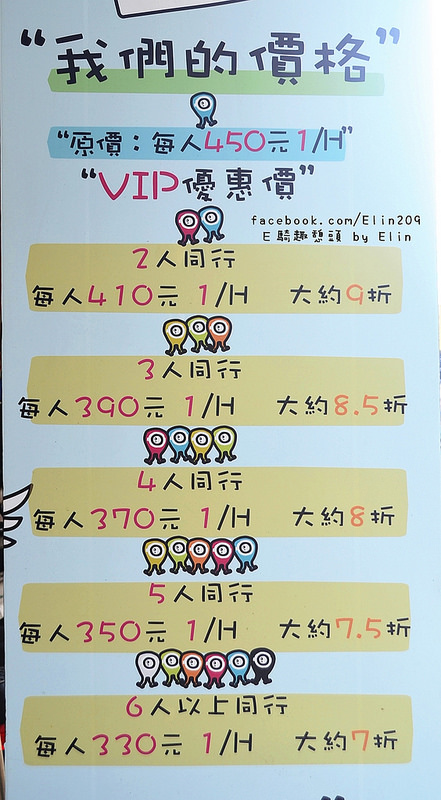 “我們的價格”
“原價：每人450元1/H”
“VIP優惠價”
facebook.com/Elin209
E騎趣憩頭 by Elin
2人同行
每人410元 1/H 大約9折
3人同行
每人390元 1/H 大約8.5折
4人同行
每人370元 1/H 大約8折
5人同行
每人350元 1/H 大約7.5折
6人以上同行
每人330元 1/H 大約7折